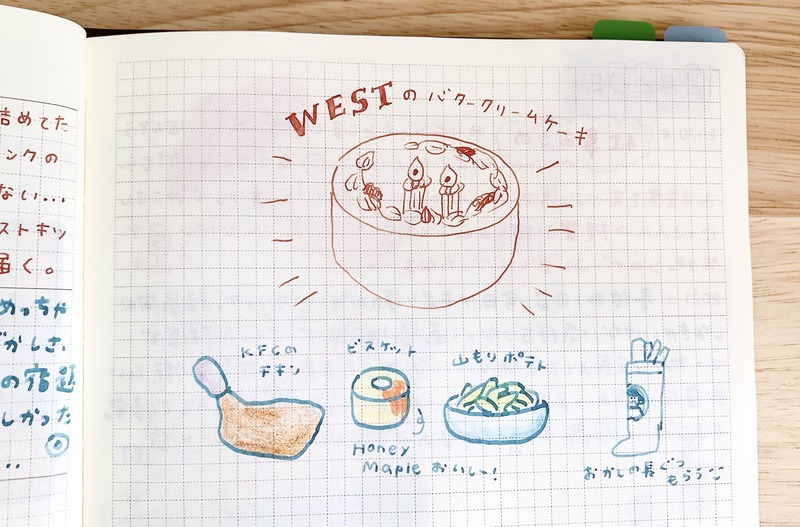 詰めてた
ンクの
ない...
ストキッ
届く。
めっちゃ
の宿題
しかった
WESTのバタークリームケーキ
KFCの
チキン
ビスケット
Honey
Maple おいしー!
山もりポテト
おかしの長ぐつ
もらう